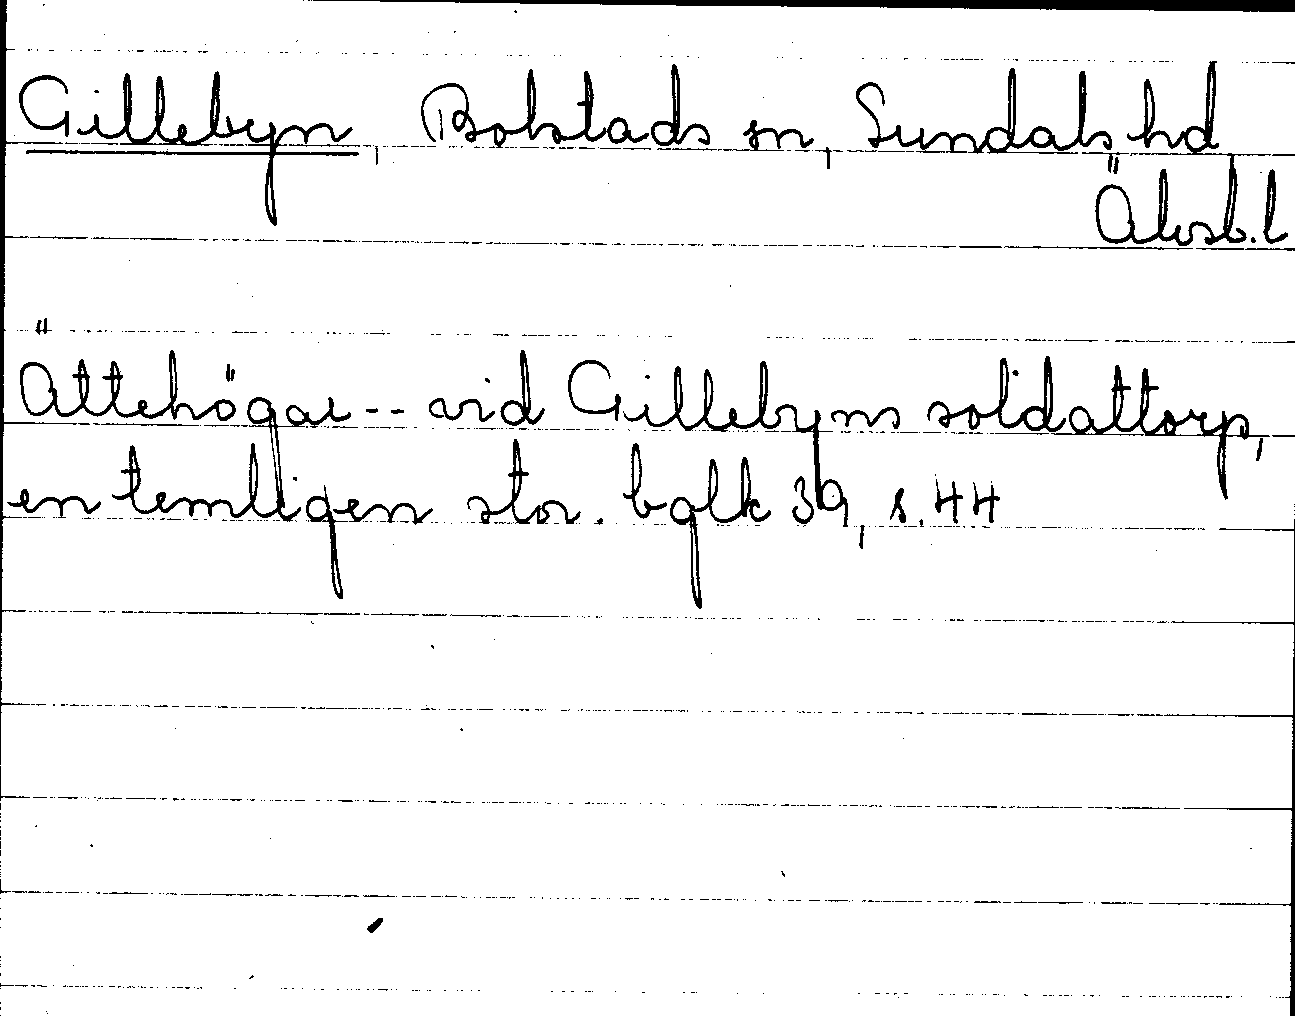 Gillebyn, Bolstads sn, Sundals hd
Älvsb. l
Ättehögar -- vid Gillebyns soldattorp,
en temligen stor. bglk 39, s. 44